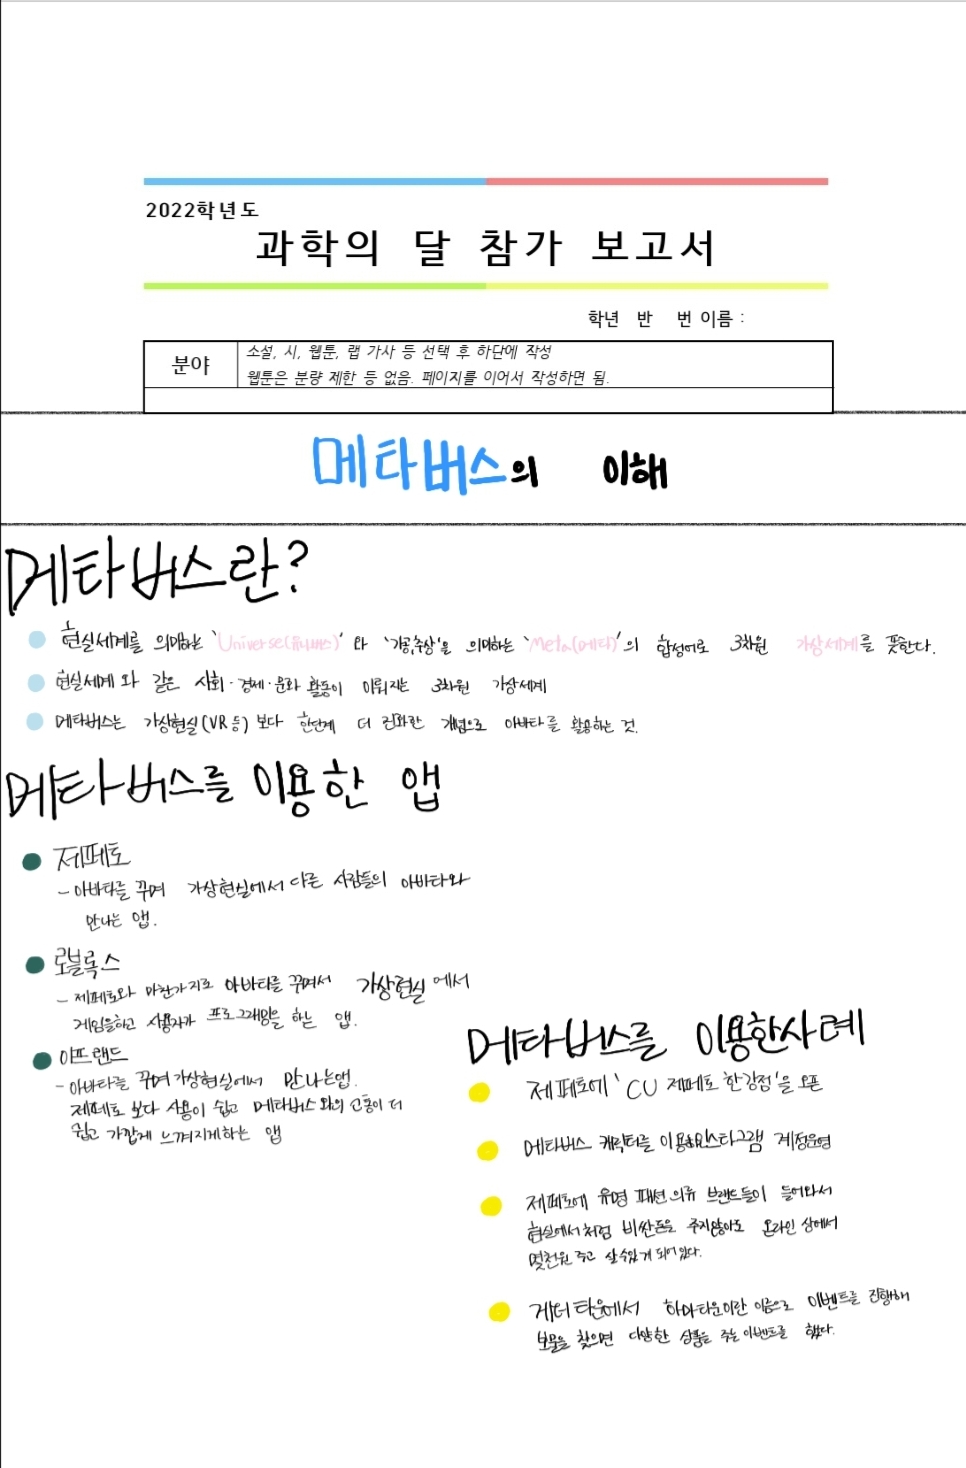 2022학년도
과학의 달 참가 보고서
학년 반 번 이름 :
분야
소설, 시, 웹툰, 랩 가사 등 선택 후 하단에 작성
웹툰은 분량 제한 등 없음. 페이지를 이어서 작성하면 됨.
메타버스의 이해
메타버스란?
현실세계를 의미하는 'Universe(유니버스)' 와 '가공,추상'을 의미하는 'Meta(메타)'의 합성어로 3차원 가상세계를 뜻한다.
현실세계와 같은 사회·경제·문화 활동이 이뤄지는 3차원 가상세계
메타버스는 가상현실(VR등)보다 한단계 더 진화한 개념으로 아바타를 활용하는 것.
메타버스를 이용한 앱
제페토
- 아바타를 꾸며 가상현실에서 다른 사람들의 아바타와
만나는 앱.
로블록스
- 제페토와 마찬가지로 아바타를 꾸며서 가상현실에서
게임을하고 사용자가 프로그래밍을 하는 앱.
이프랜드
- 아바타를 꾸며 가상현실에서 만나는앱.
제페토 보다 사용이 쉽고 메타버스와의 소통이 더
쉽고 가깝게 느껴지게하는 앱
메타버스를 이용한사례
제페토에 'CU 제페토 한강점'을 오픈
메타버스 캐릭터를 이용한인스타그램 계정운영
제페토에 유명 패션의류 브랜드들이 들어와서
현실에서처럼 비싼돈을 주지않아도 온라인 상에서
몇천원 주고 살수있게 되어있다.
게더타운에서 하마타운이란 이름으로 이벤트를 진행해
보물을 찾으면 다양한 상품을 주는 이벤트를 했다.